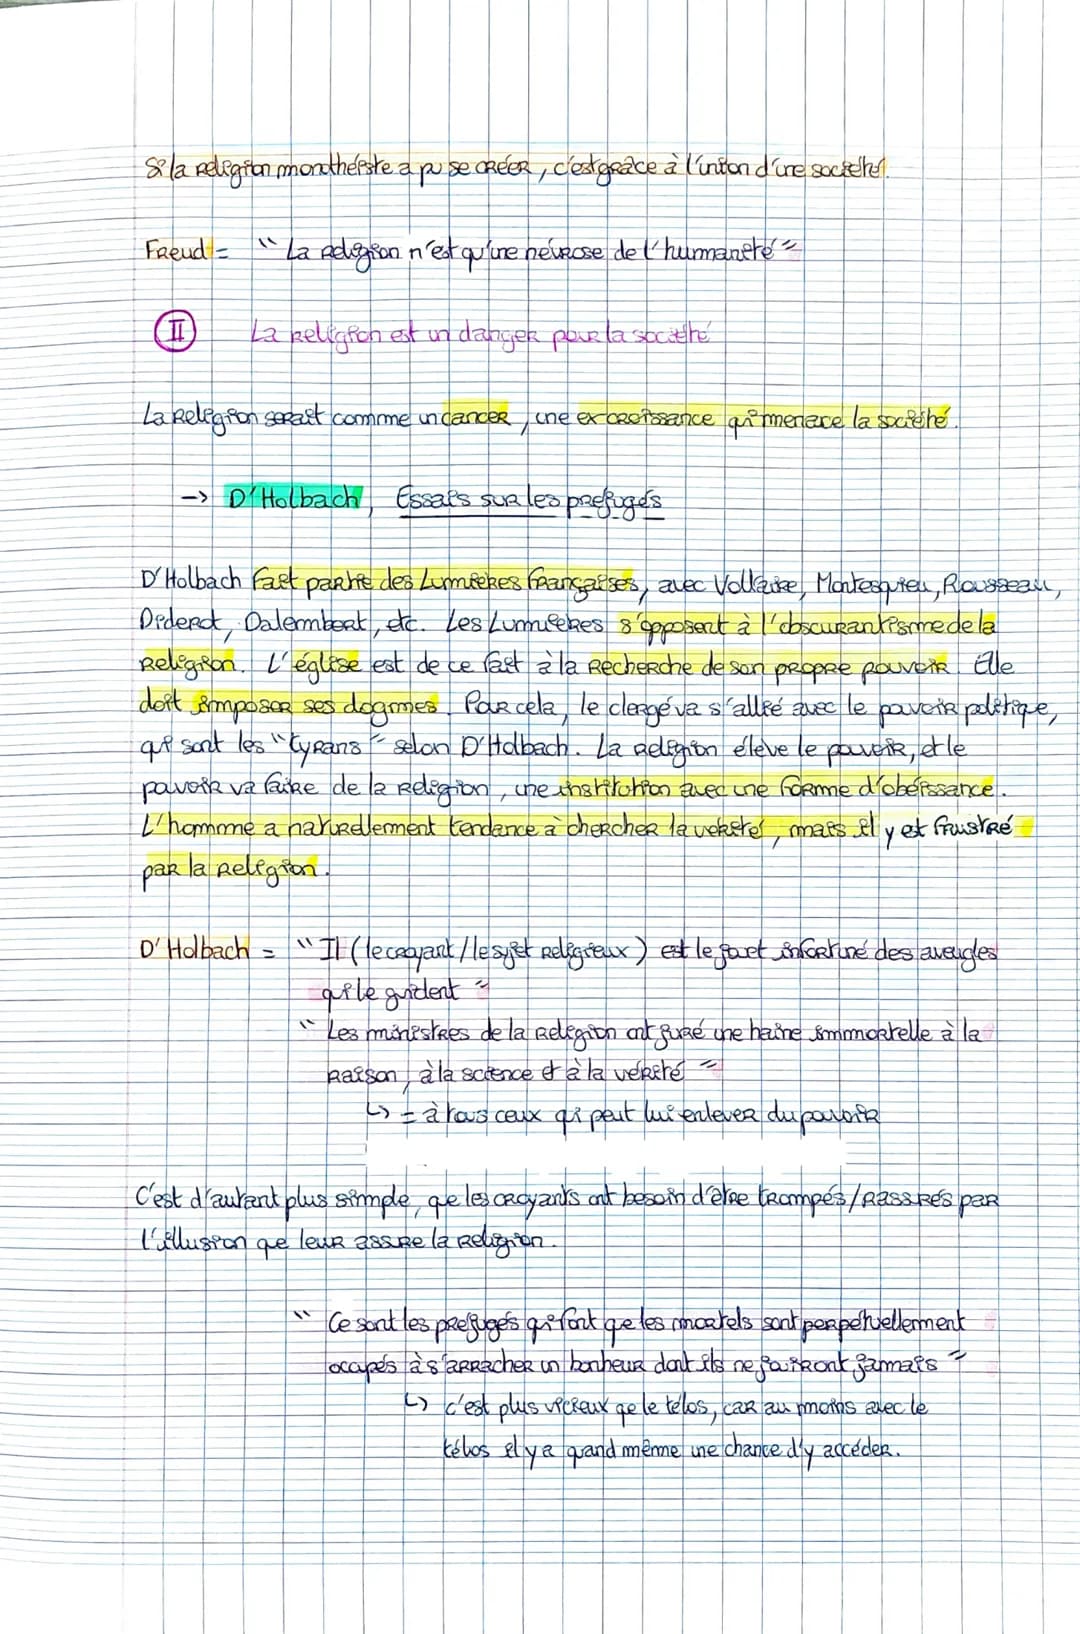 Si la religion monothéiste a pu se créer, c'est grâce à l'union d'une société.
Freud = "La religion n'est qu'une névrose de l'humanité"
II La religion est un danger pour la société
La Religion serait comme un cancer, une excroissance qui menace la société.
-> D'Holbach, Essais sur les préjugés
D'Holbach fait partie des Lumières françaises, avec Voltaire, Montesquieu, Rousseau,
Diderot, Dalembert, etc. Les Lumières s'opposent à l'obscurantisme de la
Religion. L'église est de ce fait à la Recherche de son propre pouvoir. Elle
doit imposer ses dogmes. Par cela, le clergé va s'allié avec le pouvoir politique,
qui sont les "tyrans" selon D'Holbach. La Religion élève le pouvoir, et le
pouvoir va faire de la Religion, une institution avec une forme d'obéissance.
L'homme a naturellement tendance à chercher la vérité, mais il y est frustré
par la Religion.
D'Holbach = "Il (le croyant / le sujet religieux) est le jouet infortuné des aveugles
qui le guident"
"Les ministres de la Religion ont juré une haine immortelle à la
Raison, à la science et à la vérité"
↳ = à tous ceux qi peut lui enlever du pouvoir
C'est d'autant plus simple, que les croyants ont besoin d'être trompés/Rassurés par
l'illusion que leur assure la Religion.
"Ce sont les préjugés qui font que les mortels sont perpétuellement
occupés à s'arracher un bonheur dont ils ne jouiront jamais"
↳ c'est plus vicieux qe le télos, car au moins avec le
télos il y a quand même une chance d'y accéder.